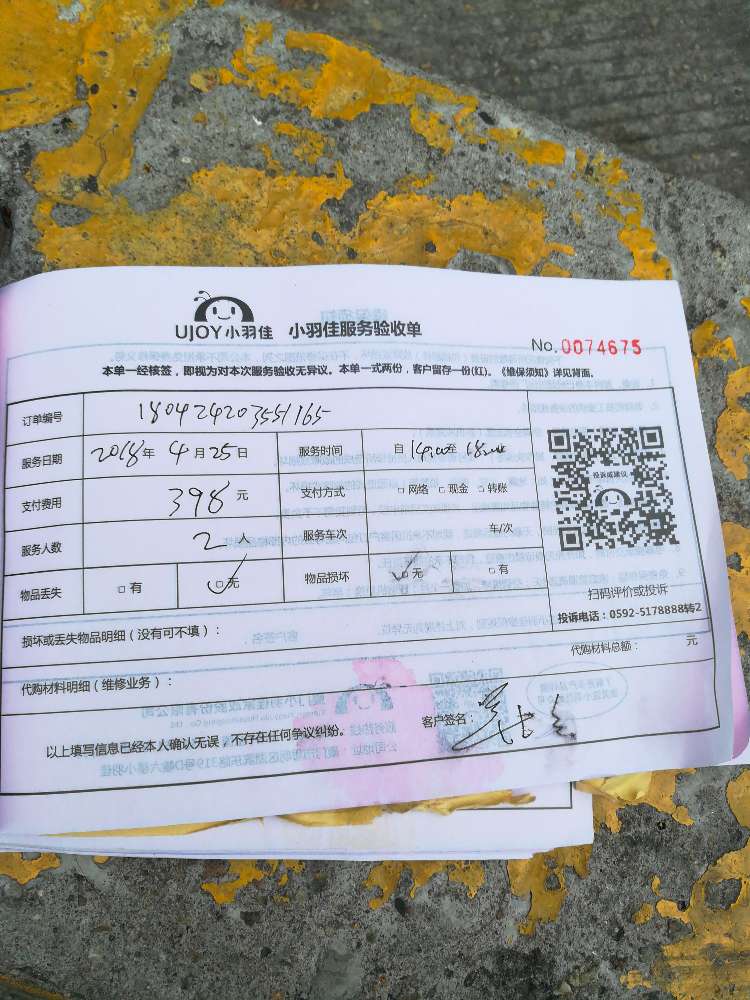 UJOY小羽佳 小羽佳服务验收单
No.0074675
本单一经核签，即视为对本次服务验收无异议。本单一式两份，客户留存一份(红)。《维保须知》详见背面。
订单编号 180424203551165
服务日期 2018年4月25日 服务时间 自14:00至18:00
支付费用 398元 支付方式 □网络 □现金 □转账
服务人数 2人 服务车次 车/次
物品丢失 □有 □无 物品损坏 □无 □有
投诉或建议
扫码评价或投诉
投诉电话：0592-5178888转2
损坏或丢失物品明细（没有可不填）：
代购材料明细（维修业务）： 代购材料总额： 元
以上填写信息已经本人确认无误，不存在任何争议纠纷。 客户签名：